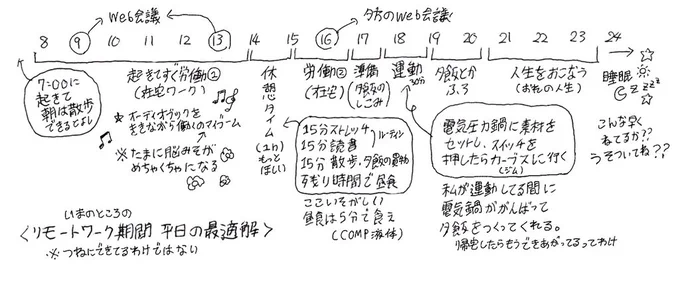 Web会議
夕方のWeb会議
8 9 10 11 12 13 14 15 16 17 18 19 20 21 22 23 24
7:00に
起きて
朝は散歩
できるとよし
起きてすぐ労働①
(在宅ワーク)
☆オーディオブックを
ききながら働くのマイブーム
※たまに脳みそが
めちゃくちゃになる
休憩タイム
(1h)
もっと
ほしい
労働②
(在宅)
準備
(夕飯の
しこみ)
運動
30分
夕飯とか
ふろ
人生をおこなう
(おれの人生)
睡眠
Gzzzz
15分ストレッチ
15分読書
ルーティン
15分散歩、夕飯の買物
残り時間で昼食
ここいそがしい
昼食は5分で食え
(COMP液体)
電気圧力鍋に素材を
セットし、スイッチを
押したらカーブスに行く
(ジム)
私が運動してる間に
電気鍋ががんばって
夕飯をつくってくれる。
帰宅したらもうできあがってるってわけ
こんな早く
ねてるか??
うそついてね??
いまのところの
<リモートワーク期間 平日の最適解>
※つねにできてるわけではない